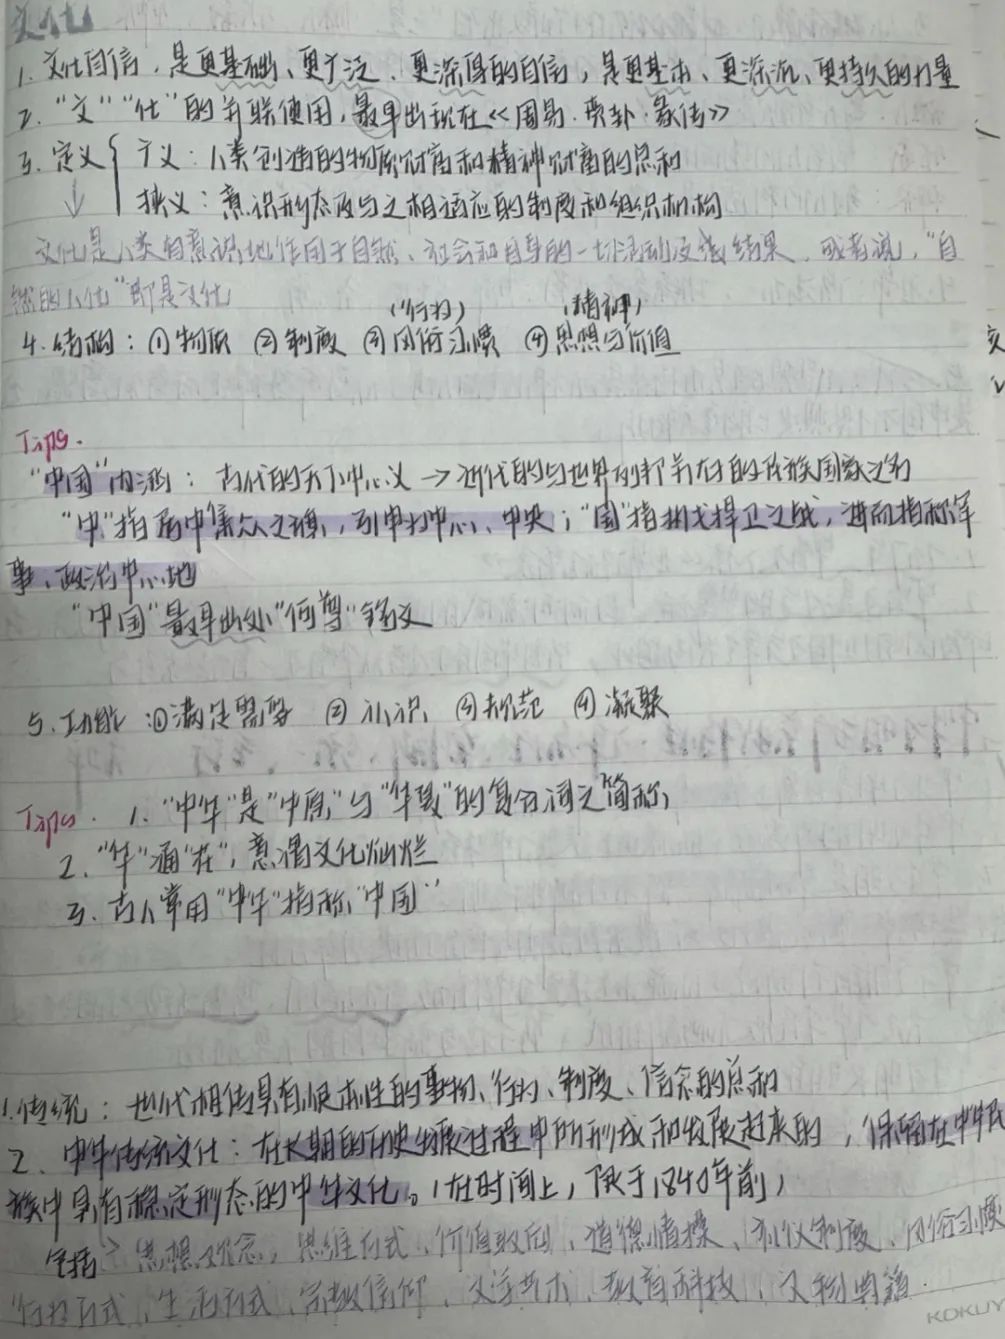 文化
1. 文化自信，是更基础、更广泛、更深厚的自信，是更基本、更深沉、更持久的力量
2. “文”“化”的并联使用，最早出现在《周易·贲卦·彖传》
3. 定义 广义：人类创造的物质财富和精神财富的总和
狭义：意识形态及与之相适应的制度和组织机构
文化是人类有意识地作用于自然、社会和自身的一切活动及其结果，或者说，“自
然的人化”即是文化
(行为) (精神)
4. 结构：①物质 ②制度 ③风俗习惯 ④思想与价值
Tips.
“中国”内涵：古代的天下中心义→近代的与世界列邦并存的民族国家之名
“中”指居中集众之旗，引申为中心、中央；“国”指执戈捍卫之城，进而指称军
事、政治中心地
“中国”最早出处“何尊”铭文
5. 功能 ①满足需要 ② 认识 ③规范 ④凝聚
Tips. 1. “中华”是“中原”与“华夏”的复合词之简称，
2. “华”通“花”，意谓文化灿烂
3. 古人常用“中华”指称“中国”
1. 传统：世代相传具有根本性的事物、行为、制度、信念的总和
2. 中华传统文化：在长期的历史发展过程中所形成和发展起来的，保留在中华民
族中具有稳定形态的中华文化。(在时间上，限于1840年前)
包括：思想观念，思维方式、价值取向、道德情操、礼仪制度、风俗习惯
行为方式，生活方式，宗教信仰，文学艺术，教育科技，文物典籍.
KOKUY